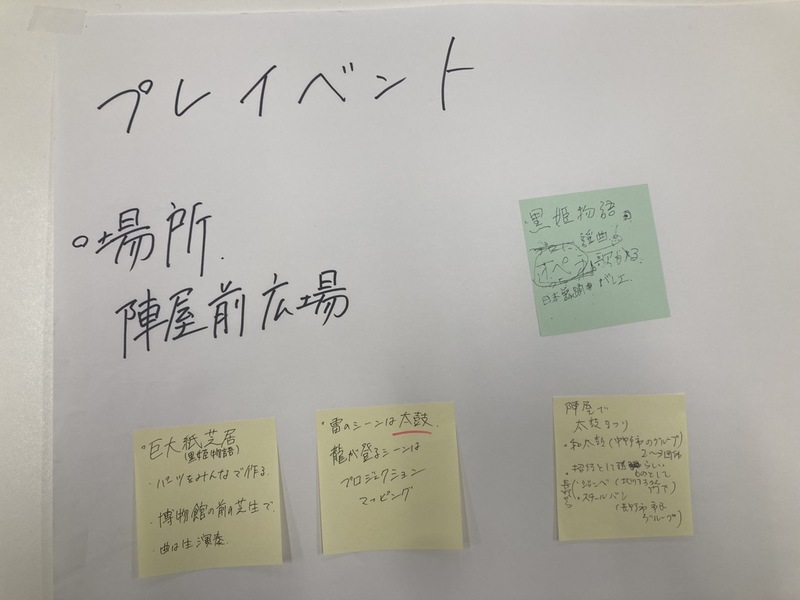 プレイベント
○場所.
陣屋前広場
・黒姫物語
謡曲
オペラ 歌
日本舞踊 バレエ
・巨大紙芝居
(黒姫物語)
・パーツをみんなで作る.
・博物館の前の芝生で.
・曲は生演奏.
・雷のシーンは太鼓.
龍が登るシーンは
プロジェクション
マッピング
陣屋で
太鼓まつり
・和太鼓(中野市のグループ)
2〜3団体
・招待として
ものとして
ジャンベ(
・スチールパン
(市民
グループ)